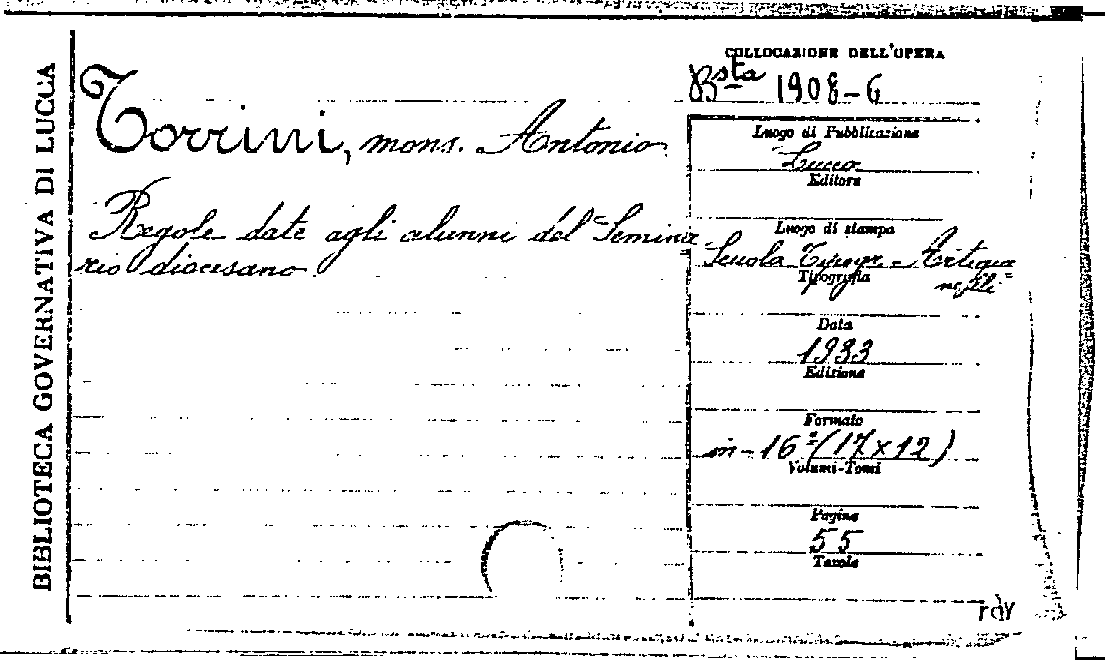 BIBLIOTECA GOVERNATIVA DI LUCCA
COLLOCAZIONE DELL'OPERA
Bsta 1908-6
Torrini, mons. Antonio
Regole date agli alunni del Semina-
rio diocesano
Luogo di Pubblicazione
Lucca
Editore
Luogo di stampa
Scuola Tipogr. Artigia
nelli
Tipografia
Data
1933
Edizione
Formato
in-16º (17x12)
Volumi-Tomi
Pagine
55
Tavole